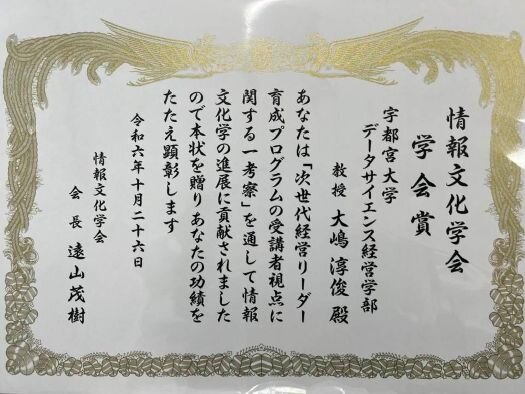 情報文化学会
学会賞
宇都宮大学
データサイエンス経営学部
教授 大嶋淳俊殿
あなたは「次世代経営リーダー
育成プログラムの受講者視点に
関する一考察」を通して情報
文化学の進展に貢献されました
ので本状を贈りあなたの功績を
たたえ顕彰します
令和六年十月二十六日
情報文化学会
会長 遠山茂樹